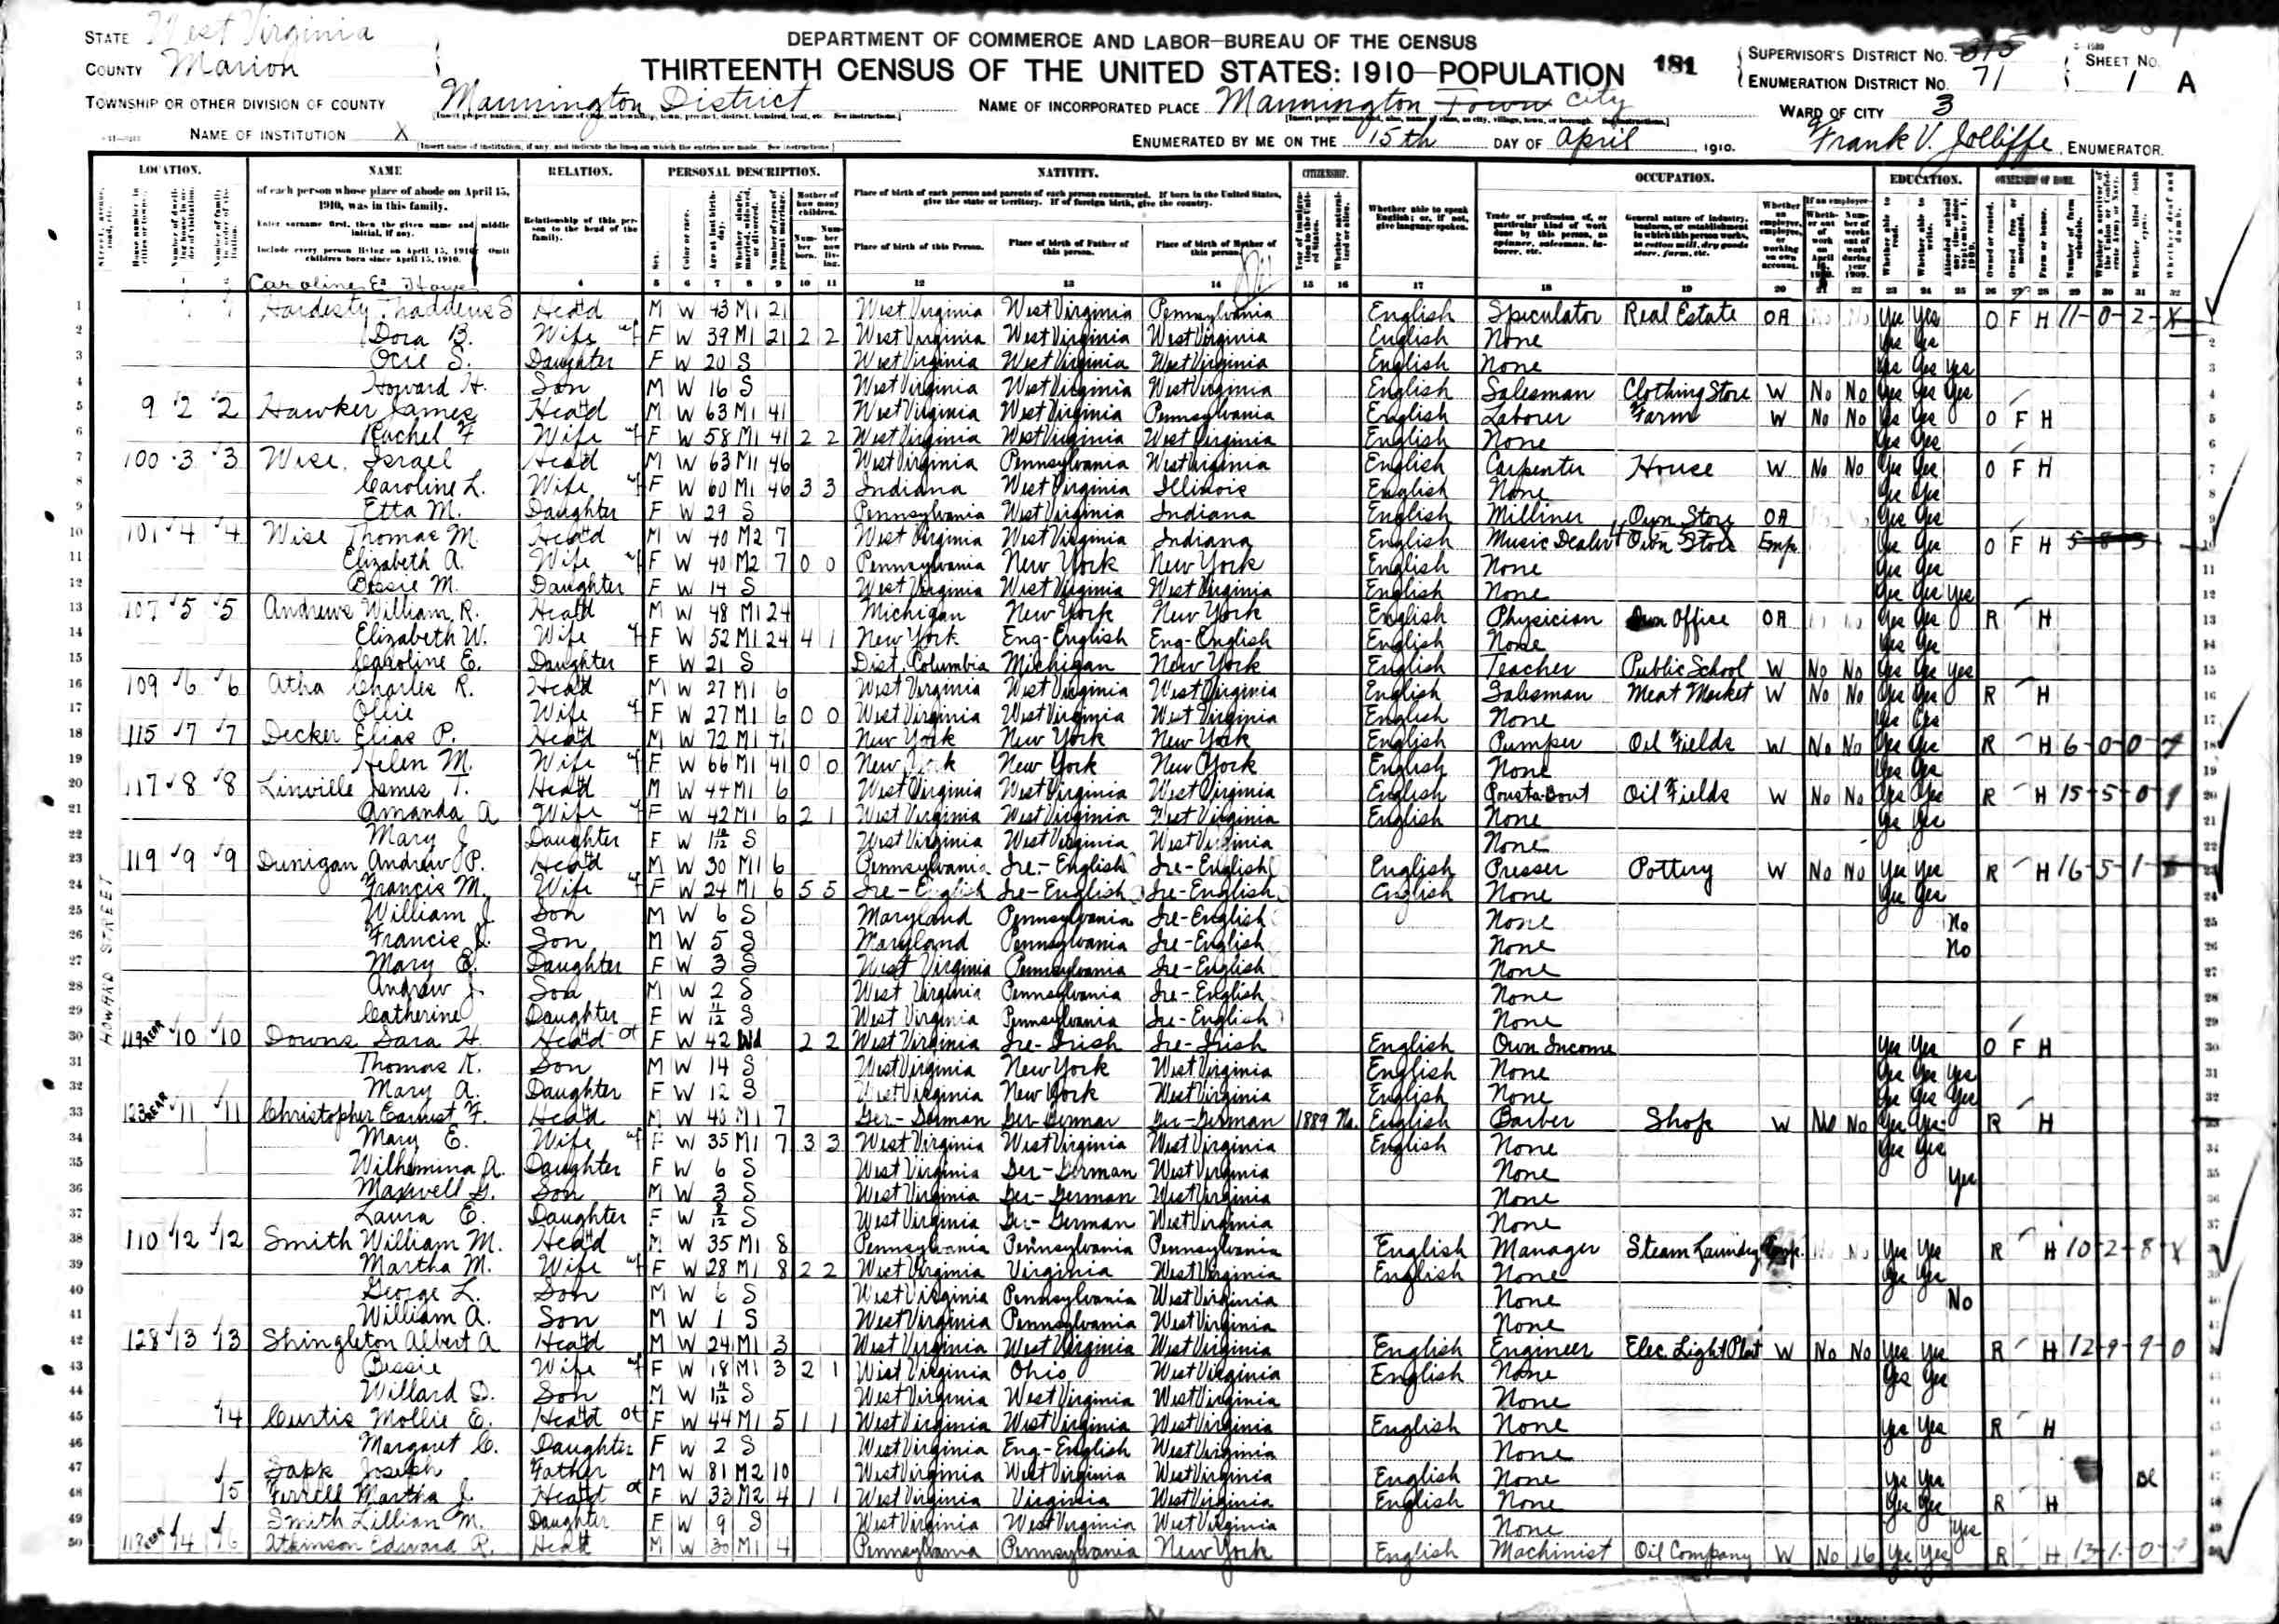 STATE West Virginia
COUNTY Marion
DEPARTMENT OF COMMERCE AND LABOR—BUREAU OF THE CENSUS
THIRTEENTH CENSUS OF THE UNITED STATES: 1910—POPULATION
181
SUPERVISOR'S DISTRICT NO.
ENUMERATION DISTRICT NO. 71
SHEET NO. 1 A
TOWNSHIP OR OTHER DIVISION OF COUNTY Mannington District
NAME OF INCORPORATED PLACE Mannington Town City
WARD OF CITY 3
NAME OF INSTITUTION X
ENUMERATED BY ME ON THE 15th DAY OF April, 1910.
Frank V. Jolliffe, ENUMERATOR.
LOCATION. NAME RELATION. PERSONAL DESCRIPTION. NATIVITY. CITIZENSHIP. OCCUPATION. EDUCATION. OWNERSHIP OF HOME.
of each person whose place of abode on April 15, 1910, was in this family.
Enter surname first, then the given name and middle initial, if any.
Include every person living on April 15, 1910. Omit children born since April 15, 1910.
Relationship of this person to the head of the family.
Place of birth of each person and parents of each person enumerated. If born in the United States, give the state or territory. If of foreign birth, give the country.
Place of birth of this Person. Place of birth of Father of this person. Place of birth of Mother of this person.
Whether able to speak English; or, if not, give language spoken.
HOWARD STREET
1 Hardesty Thaddeus S Head M W 43 M1 21 West Virginia West Virginia Pennsylvania English Speculator Real Estate OA Yes Yes O F H 11-0-2-X
2 Dora B. Wife F W 39 M1 21 2 2 West Virginia West Virginia West Virginia English None Yes Yes
3 Ocie S. Daughter F W 20 S West Virginia West Virginia West Virginia English None Yes Yes Yes
4 Howard H. Son M W 16 S West Virginia West Virginia West Virginia English Salesman Clothing Store W No No Yes Yes Yes
5 9 2 2 Hawker James Head M W 63 M1 41 West Virginia West Virginia Pennsylvania English Laborer Farm W No No Yes Yes O F H
6 Rachel F Wife F W 58 M1 41 2 2 West Virginia West Virginia West Virginia English None Yes Yes
7 100 3 3 Wise, Israel Head M W 63 M1 46 West Virginia Pennsylvania West Virginia English Carpenter House W No No Yes Yes O F H
8 Caroline L. Wife F W 60 M1 46 3 3 Indiana West Virginia Illinois English None Yes Yes
9 Etta M. Daughter F W 29 S Pennsylvania West Virginia Indiana English Milliner Own Store OA Yes Yes
10 101 4 4 Wise Thomas M. Head M W 40 M2 7 West Virginia West Virginia Indiana English Music Dealer Own Store Emp Yes Yes O F H
11 Elizabeth A. Wife F W 40 M2 7 0 0 Pennsylvania New York New York English None Yes Yes
12 Bessie M. Daughter F W 14 S West Virginia West Virginia West Virginia English None Yes Yes Yes
13 107 5 5 Andrews William R. Head M W 48 M1 24 Michigan New York New York English Physician Own Office OA Yes Yes R H
14 Elizabeth W. Wife F W 52 M1 24 4 1 New York Eng-English Eng-English English None Yes Yes
15 Caroline E. Daughter F W 21 S Dist. Columbia Michigan New York English Teacher Public School W No No Yes Yes Yes
16 109 6 6 Atha Charles R. Head M W 27 M1 6 West Virginia West Virginia West Virginia English Salesman Meat Market W No No Yes Yes R H
17 Ollie Wife F W 27 M1 6 0 0 West Virginia West Virginia West Virginia English None Yes Yes
18 115 7 7 Decker Elias P. Head M W 72 M1 41 New York New York New York English Pumper Oil Fields W No No Yes Yes R H 6-0-0
19 Helen M. Wife F W 66 M1 41 0 0 New York New York New York English None Yes Yes
20 117 8 8 Linville James T. Head M W 44 M1 6 West Virginia West Virginia West Virginia English Rousta-Bout Oil Fields W No No Yes Yes R H 15-5-0
21 Amanda A Wife F W 42 M1 6 2 1 West Virginia West Virginia West Virginia English None Yes Yes
22 Mary J. Daughter F W S West Virginia West Virginia West Virginia None
23 119 9 9 Dunigan Andrew P. Head M W 30 M1 6 Pennsylvania Ire-English Ire-English English Presser Pottery W No No Yes Yes R H 16-5-1
24 Francis M. Wife F W 24 M1 6 5 5 Ire-English Ire-English Ire-English English None Yes Yes
25 William J. Son M W 6 S Maryland Pennsylvania Ire-English None No
26 Francis J. Son M W 5 S Maryland Pennsylvania Ire-English None No
27 Mary E. Daughter F W 3 S West Virginia Pennsylvania Ire-English None
28 Andrew J. Son M W 2 S West Virginia Pennsylvania Ire-English None
29 Catherine Daughter F W 11/12 S West Virginia Pennsylvania Ire-English None
30 119 REAR 10 10 Downs Sara H. Head F W 42 Wd 2 2 West Virginia Ire-Irish Ire-Irish English Own Income Yes Yes O F H
31 Thomas K. Son M W 14 S West Virginia New York West Virginia English None Yes Yes Yes
32 Mary A. Daughter F W 12 S West Virginia New York West Virginia English None Yes Yes Yes
33 123 REAR 11 11 Christopher Earnest F. Head M W 40 M1 7 Ger-German Ger-German Ger-German 1889 Na English Barber Shop W No No Yes Yes R H
34 Mary E. Wife F W 35 M1 7 3 3 West Virginia West Virginia West Virginia English None Yes Yes
35 Wilhemina A. Daughter F W 6 S West Virginia Ger-German West Virginia None Yes
36 Maxwell G. Son M W 3 S West Virginia Ger-German West Virginia None
37 Laura E. Daughter F W S West Virginia Ger-German West Virginia None
38 110 12 12 Smith William M. Head M W 35 M1 8 Pennsylvania Pennsylvania Pennsylvania English Manager Steam Laundry Yes Yes R H 10-2-8-X
39 Martha M. Wife F W 28 M1 8 2 2 West Virginia Virginia West Virginia English None Yes Yes
40 George L. Son M W 6 S West Virginia Pennsylvania West Virginia None No
41 William A. Son M W 1 S West Virginia Pennsylvania West Virginia None
42 128 13 13 Shingleton Albert A Head M W 24 M1 3 West Virginia West Virginia West Virginia English Engineer Elec. Light Plant W No No Yes Yes R H 12-9-9-0
43 Bessie Wife F W 18 M1 3 2 1 West Virginia Ohio West Virginia English None Yes Yes
44 Willard D. Son M W S West Virginia West Virginia West Virginia None
45 14 Curtis Mollie E. Head F W 44 M1 5 1 1 West Virginia West Virginia West Virginia English None Yes Yes R H
46 Margaret C. Daughter F W 2 S West Virginia Eng-English West Virginia None
47 Joseph Father M W 81 M2 10 West Virginia West Virginia West Virginia English None Yes Yes
48 15 Ferrell Martha J. Head F W 33 M2 4 1 1 West Virginia Virginia West Virginia English None Yes Yes R H
49 Smith Lillian M. Daughter F W 9 S West Virginia West Virginia West Virginia None Yes
50 REAR 14 16 Atkinson Edward R. Head M W 30 M1 4 Pennsylvania Pennsylvania New York English Machinist Oil Company W No 16 Yes Yes R H 13-1-0